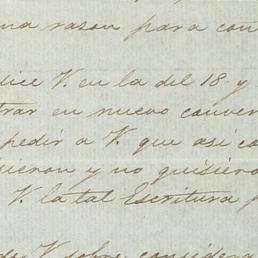 na razon para con
dice V. en la del 18 y
trar en nuevo conven
pedir a V. que asi co
ieron y no quisiero
V. la tal Escritura p
de V. sobre considera